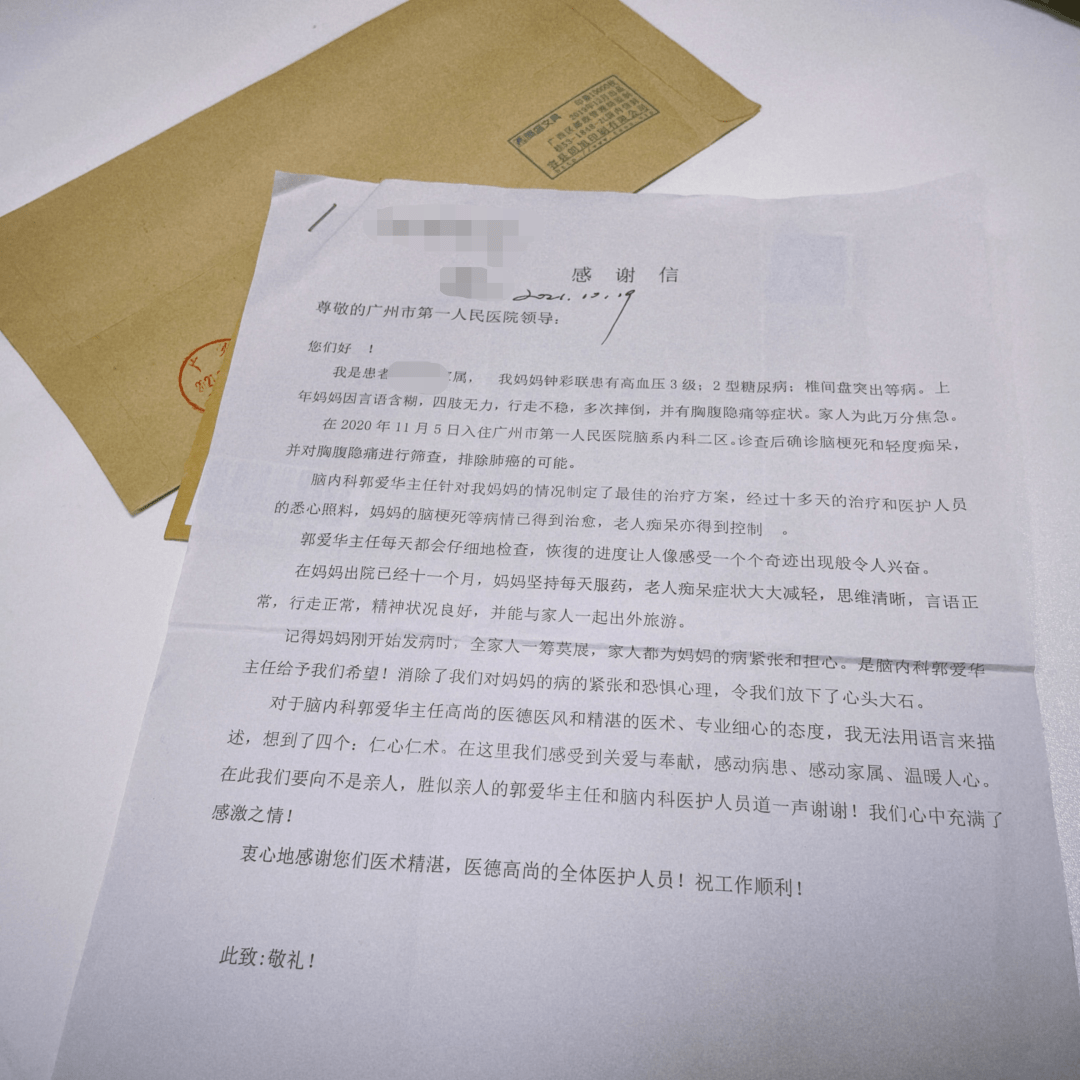 感谢信
2021.10.19
尊敬的广州市第一人民医院领导：
您们好 ！
我是患者 属， 我妈妈钟彩联患有高血压3级；2型糖尿病；椎间盘突出等病。上
年妈妈因言语含糊，四肢无力，行走不稳，多次摔倒，并有胸腹隐痛等症状。家人为此万分焦急。
在2020年11月5日入住广州市第一人民医院脑系内科二区。诊查后确诊脑梗死和轻度痴呆，
并对胸腹隐痛进行筛查，排除肺癌的可能。
脑内科郭爱华主任针对我妈妈的情况制定了最佳的治疗方案，经过十多天的治疗和医护人员
的悉心照料，妈妈的脑梗死等病情已得到治愈，老人痴呆亦得到控制 。
郭爱华主任每天都会仔细地检查，恢復的进度让人像感受一个个奇迹出现般令人兴奋。
在妈妈出院已经十一个月，妈妈坚持每天服药，老人痴呆症状大大减轻，思维清晰，言语正
常，行走正常，精神状况良好，并能与家人一起出外旅游。
记得妈妈刚开始发病时，全家人一筹莫展，家人都为妈妈的病紧张和担心。是脑内科郭爱华
主任给予我们希望！消除了我们对妈妈的病的紧张和恐惧心理，令我们放下了心头大石。
对于脑内科郭爱华主任高尚的医德医风和精湛的医术、专业细心的态度，我无法用语言来描
述，想到了四个：仁心仁术。在这里我们感受到关爱与奉献，感动病患、感动家属、温暖人心。
在此我们要向不是亲人，胜似亲人的郭爱华主任和脑内科医护人员道一声谢谢！我们心中充满了
感激之情！
衷心地感谢您们医术精湛，医德高尚的全体医护人员！祝工作顺利！
此致：敬礼！